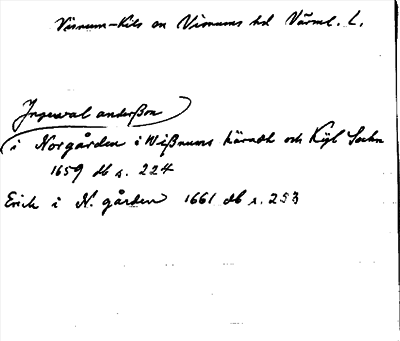 Visnum-Kils sn Visnums hd Värml. L.
Ingewal anderßon
i Norgården i Wißnums häradh och Kijl Sochn
1659 db s. 224
Erich i N. gården 1661 db s. 253